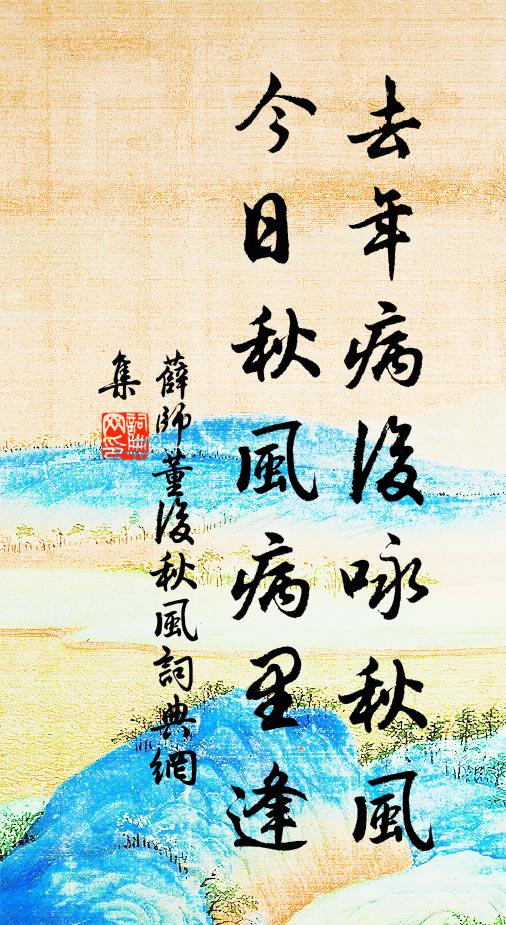 去年病後咏秋風
今日秋風病里逢
薛師董後秋風詞典網
集
詞典網印